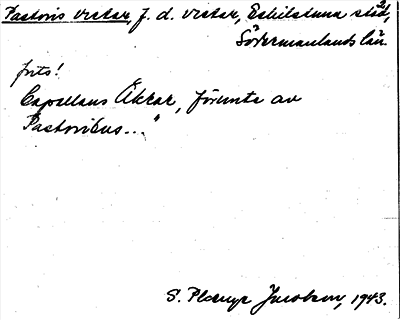 Pastoris vretar, f. d. vretar, Eskilstuna stad,
Södermanlands län.
forts!
Capellans Åkrar, förenta av
Pastoribus..."
S. Jacobson, 1943.